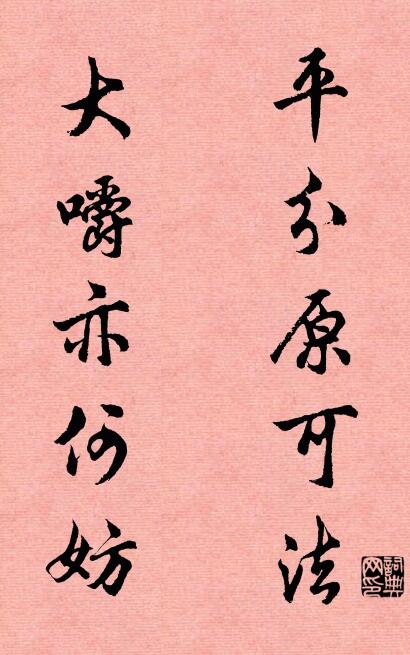 平分原可法
大嚼亦何妨
詞典
网印